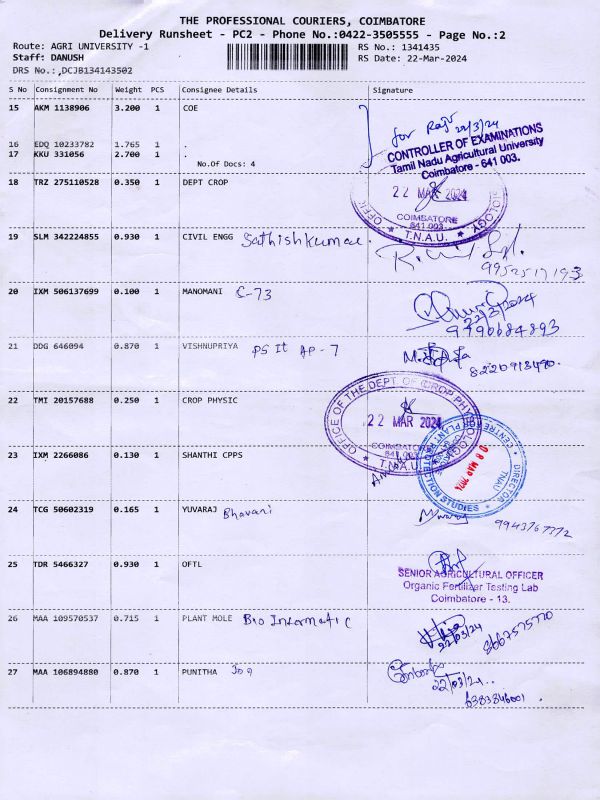 THE PROFESSIONAL COURIERS, COIMBATORE
Delivery Runsheet - PC2 - Phone No.:0422-3505555 - Page No.:2
Route: AGRI UNIVERSITY -1
RS No.: 1341435
Staff: DANUSH
RS Date: 22-Mar-2024
DRS No.: DCJB134143502
S No Consignment No Weight PCS Consignee Details Signature
15 AKM 1138906 3.200 1 COE
for Raju 22/3/24
16 EDQ 10233782 1.765 1 .
17 KKU 331056 2.700 1 .
No.Of Docs: 4
CONTROLLER OF EXAMINATIONS
Tamil Nadu Agricultural University
Coimbatore - 641 003.
18 TRZ 275110528 0.350 1 DEPT CROP
22 MAR 2024
COIMBATORE
641 003
T.N.A.U.
19 SLM 342224855 0.930 1 CIVIL ENGG Sathishkumar.
20 IXM 506137699 0.100 1 MANOMANI C-73
22/3/2024
9790684893
21 DDG 646094 0.870 1 VISHNUPRIYA PS II AP-7
8220913490.
22 TMI 20157688 0.250 1 CROP PHYSIC
OFFICE OF THE DEPT. OF CROP PHYSIOLOGY
22 MAR 2024
COIMBATORE
641 003
T.N.A.U.
23 IXM 2266086 0.130 1 SHANTHI CPPS
DIRECTOR
CENTRE FOR PLANT PROTECTION STUDIES
TNAU
24 TCG 50602319 0.165 1 YUVARAJ Bhavani
25 TDR 5466327 0.930 1 OFTL
SENIOR AGRICULTURAL OFFICER
Organic Fertilizer Testing Lab
Coimbatore - 13.
26 MAA 109570537 0.715 1 PLANT MOLE Bio Informatic
22/03/24
8667575770
27 MAA 106894880 0.870 1 PUNITHA
22/03/24..
6383846001.